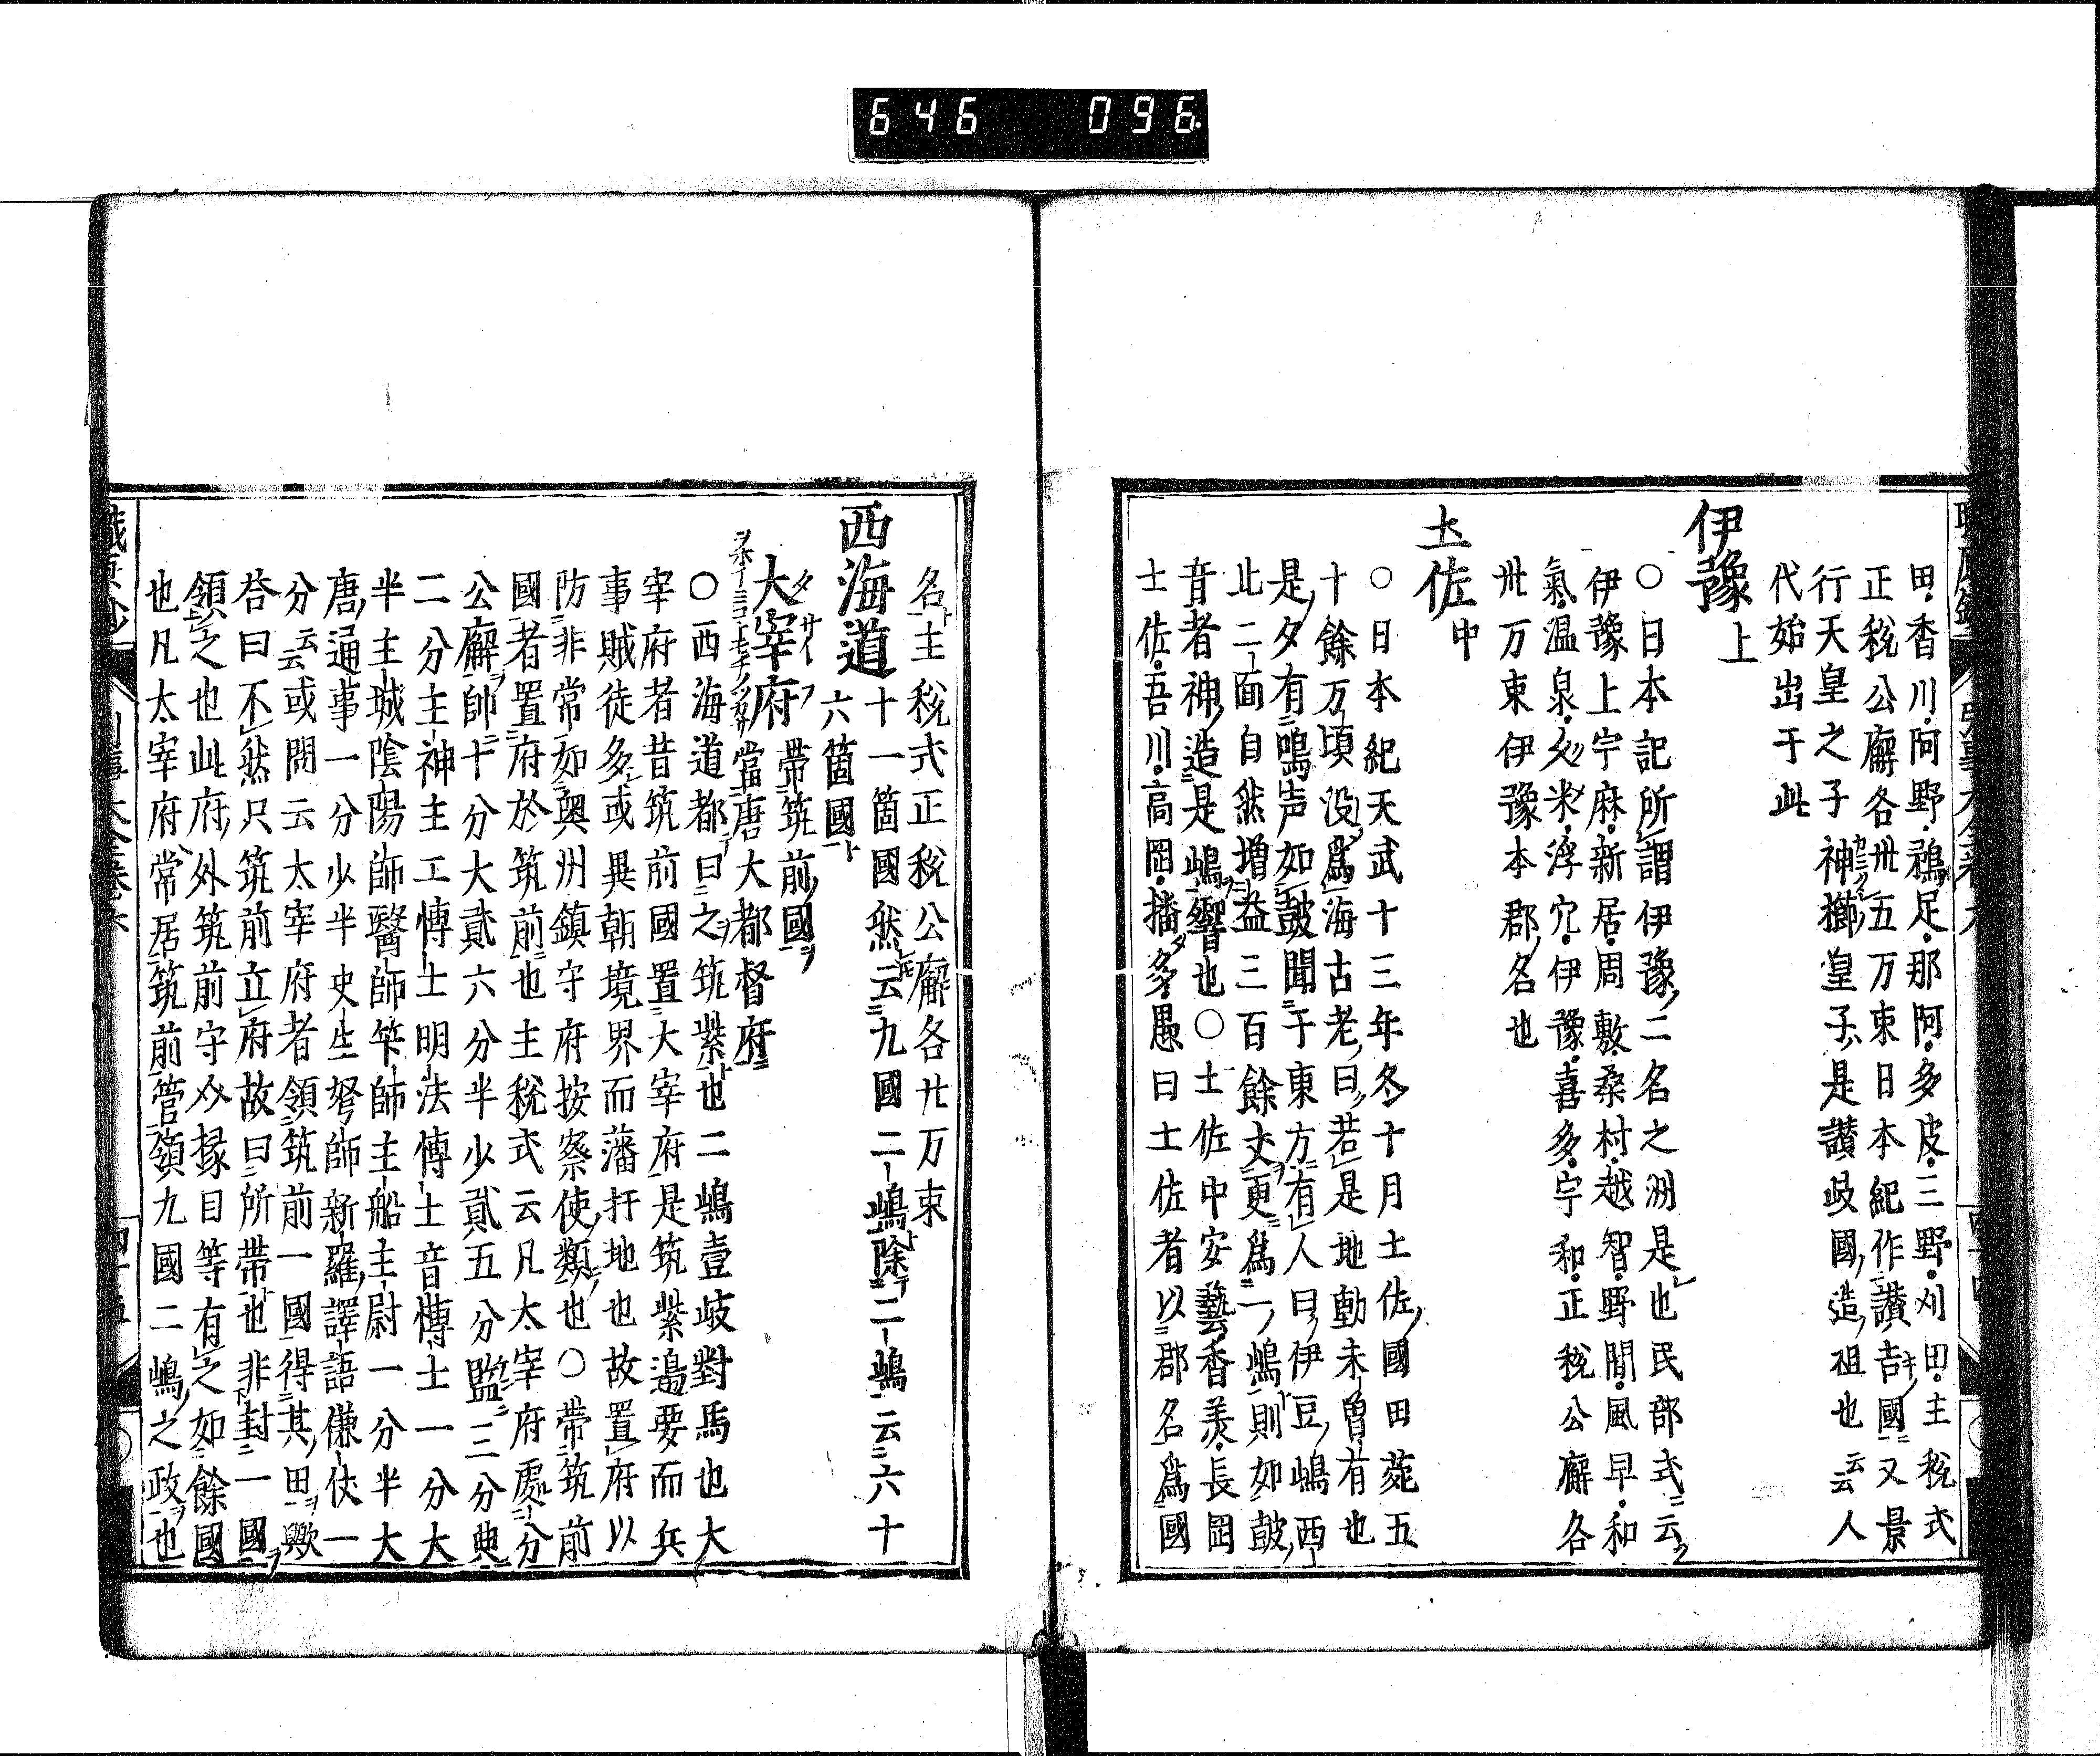 646 096
田·香川·阿野·鵜足·那阿·多皮·三野·刈田·主税式
正税公廨各卅五万束日本紀作讃吉國又景
行天皇之子神櫛皇子是讃歧國造祖也云云人
代始出于此
伊豫上
○日本記所謂伊豫二名之洲是也民部式云
伊豫上宇麻·新居·周敷·桑村·越智·野間·風早·和
氣·温泉·久米·浮穴·伊豫·喜多·宇和·正税公廨各
卅万束伊豫本郡名也
土佐中
○日本紀天武十三年冬十月土佐國田菀五
十餘万頃没爲海古老曰若是地動未曾有也
是夕有鳴声如皷聞于東方有人曰伊豆嶋西
北二面自然増益三百餘丈更爲一嶋則如皷
音者神造是嶋響也○土佐中安藝·香美·長岡
土佐·吾川·高岡·播多·愚曰土佐者以郡名爲國
名主税式正税公廨各廿万束
西海道十一箇國然云九國二嶋除二嶋云六十
六箇國
大宰府帶筑前國當唐大都督府
○西海道都曰之筑紫也二嶋壹岐對馬也大
宰府者昔筑前國置大宰府是筑紫邉要而兵
事賊徒多或異朝境界而藩扞地也故置府以
防非常如奥州鎮守府按察使類也○帶筑前
國者置府於筑前也主税式云凡太宰府處分
公廨帥十分大貳六分半少貳五分監三分典
二分主神主工愽士明法愽士音愽士一分大
半主城陰陽師醫師筭師主船主尉一分半大
唐通事一分少半史生弩師新羅譯語傔仗一
分云云或問云太宰府者領筑前一國得其田歟
荅曰不然只筑前立府故曰所帶也非封一國
領之也此府外筑前守介掾目等有之如餘國
也凡太宰府常居筑前管領九國二嶋之政也